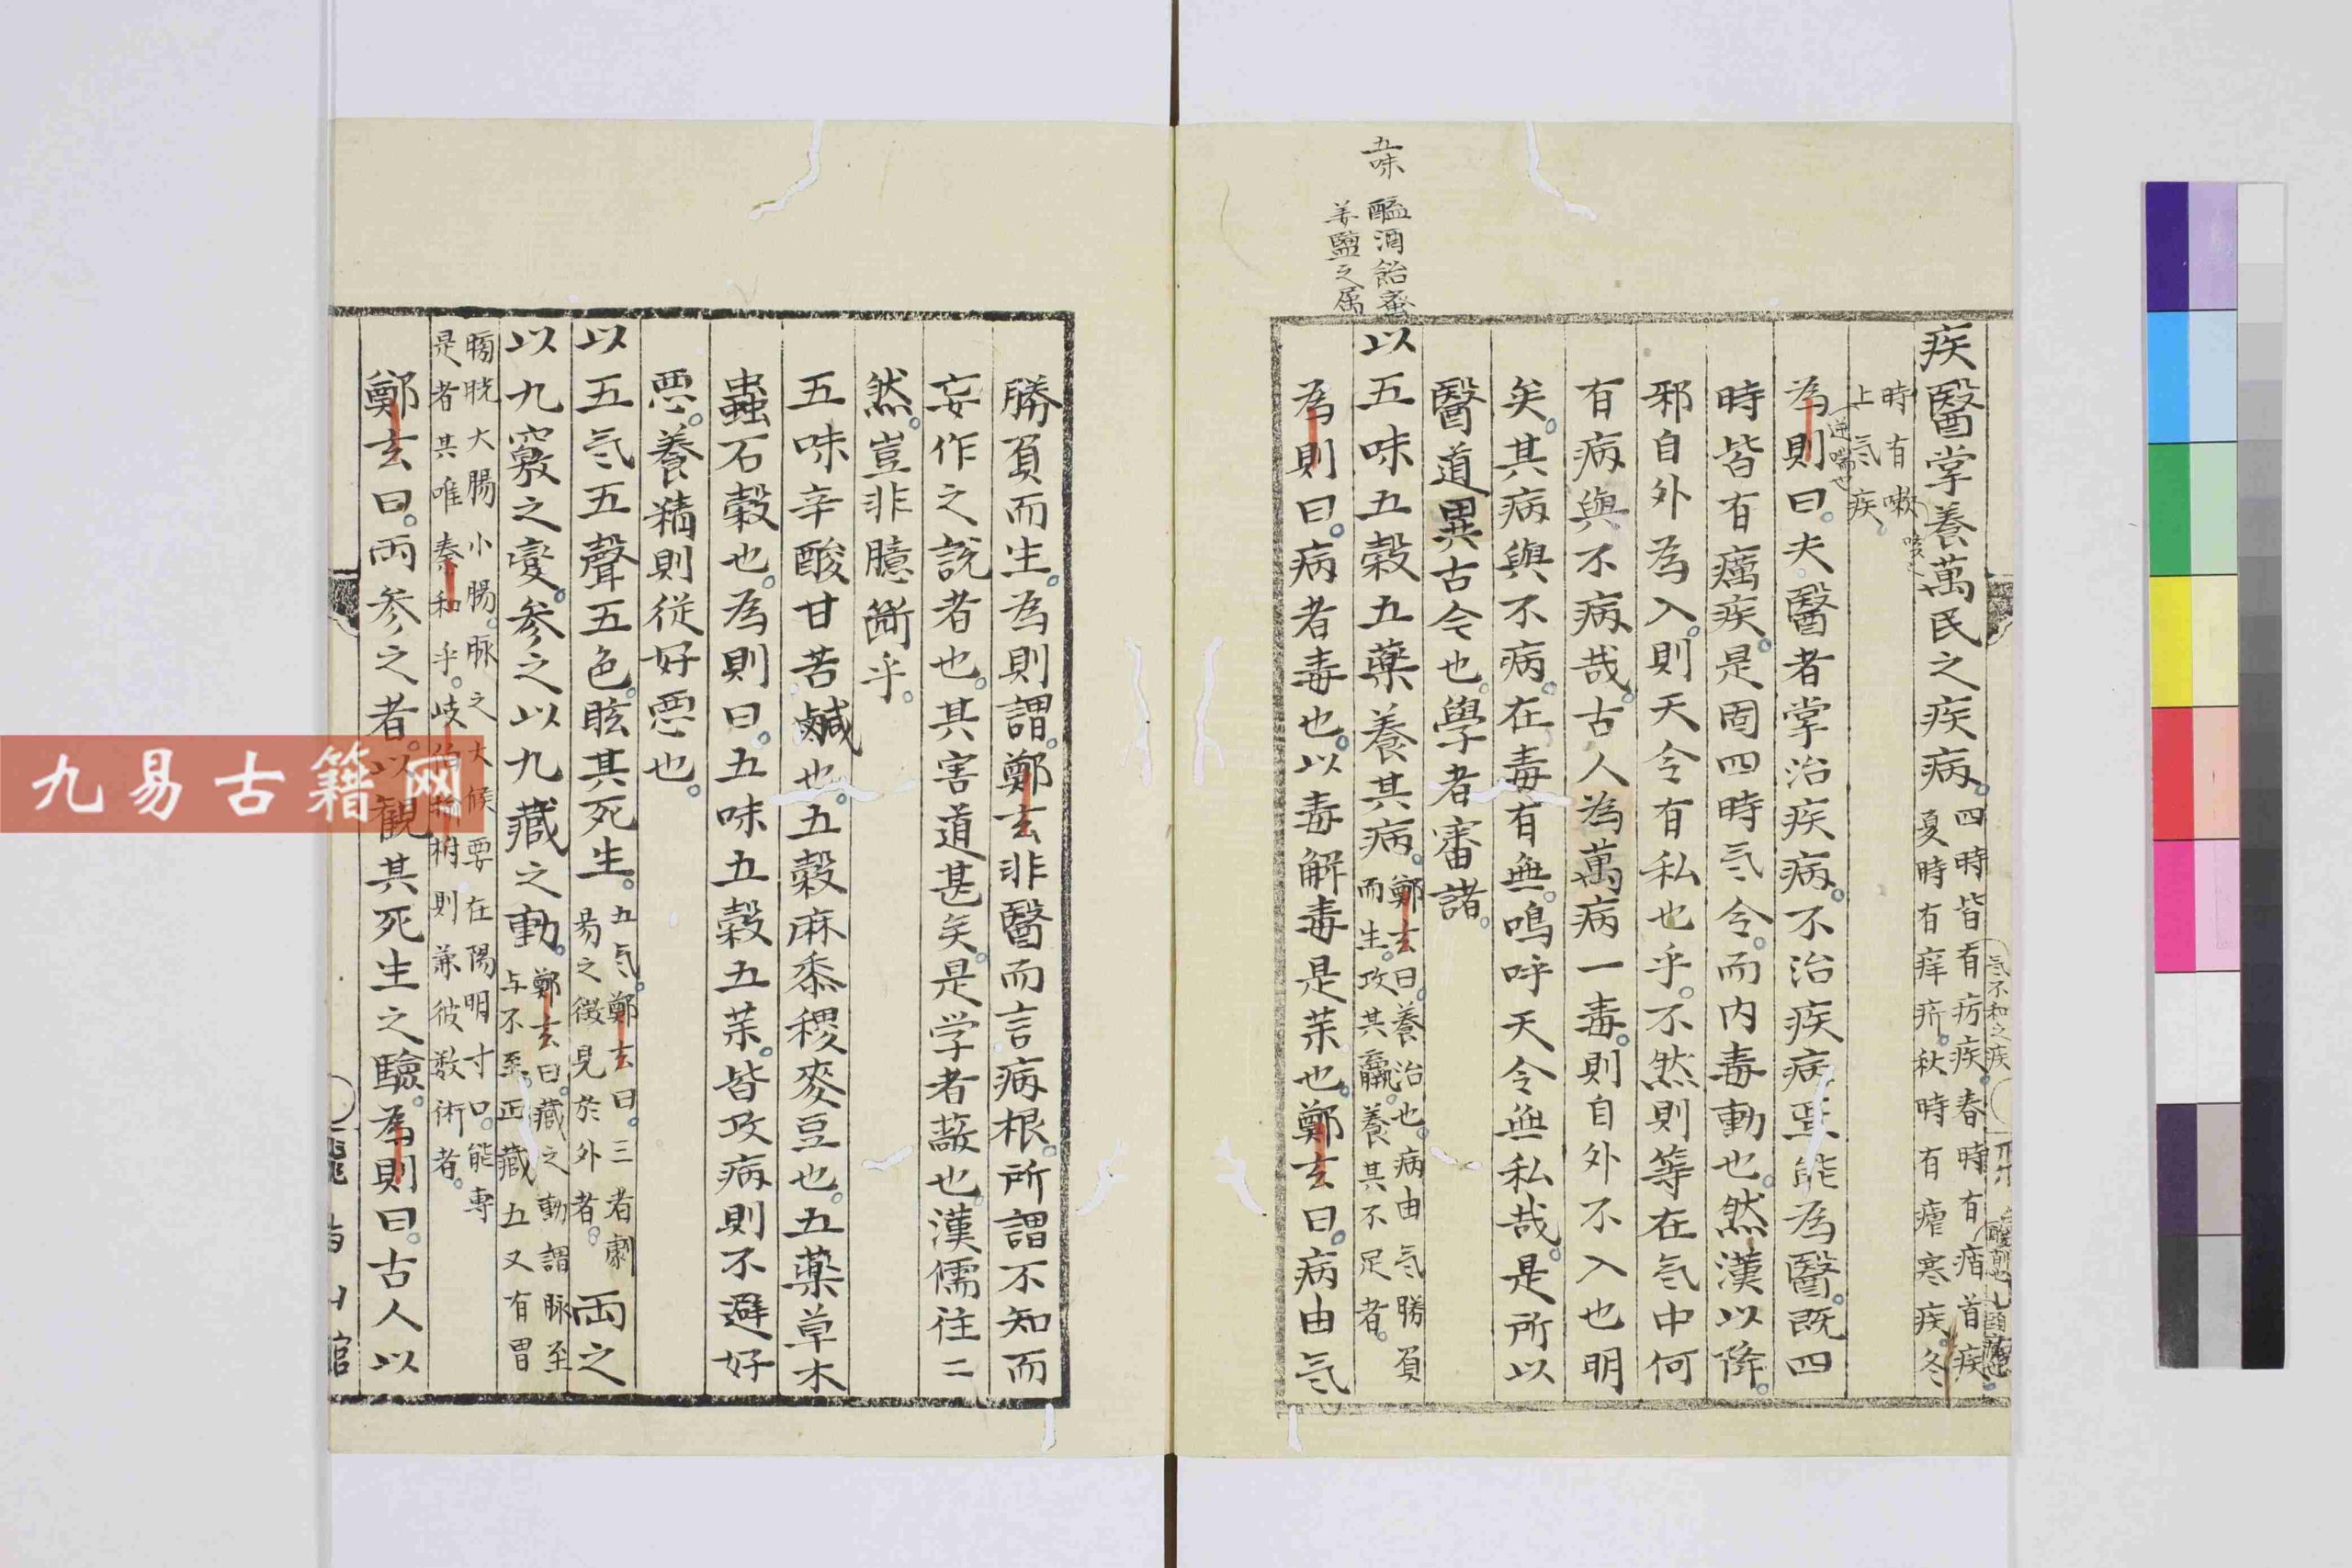 五味
醯酒飴蜜
姜鹽之属
疾醫掌養萬民之疾病。四時皆有疠疾。春時有痟首疾
夏時有痒疥。秋時有瘧寒疾。冬
氣不和之疾
時有嗽
上氣疾。
咳也
逆喘也
為則曰。夫醫者掌治疾病。不治疾病焉能為醫。既四
時皆有癘疾。是因四時氣令。而内毒動也。然漢以降。
邪自外為入。則天令有私也乎。不然則等在氣中何
有病與不病哉。古人為萬病一毒。則自外不入也明
矣。其病與不病。在毒有無。鳴呼天令無私哉。是所以
醫道異古今也。學者審諸。
以五味五穀五藥養其病。鄭玄曰。養治也。病由氣勝負
而生。攻其羸。養其不足者。
為則曰。病者毒也。以毒解毒是茱也。鄭玄曰。病由氣
勝負而生。為則謂。鄭玄非醫而言病根。所謂不知而
妄作之說者也。其害道甚矣。是学者蔽也。漢儒往二
然。豈非臆斷乎。
五味辛酸甘苦鹹也。五穀麻黍稷麥豆也。五藥草木
蟲石穀也。為則曰。五味五穀五茱。皆攻病則不避好
惡。養精則從好惡也。
以五氣五聲五色。眡其死生。五氣。鄭玄曰。三者劇
易之徵見於外者。兩之
以九竅之變。参之以九藏之動。鄭玄曰。藏之動謂脉至
与不至。正藏五又有胃
膀胱大腸小腸。脉之大候要在陽明寸口。能專
是者其唯秦和乎。岐伯揄柎則兼彼数術者。
鄭玄曰。兩参之者。以觀其死生之驗。為則曰。古人以
九易古籍网